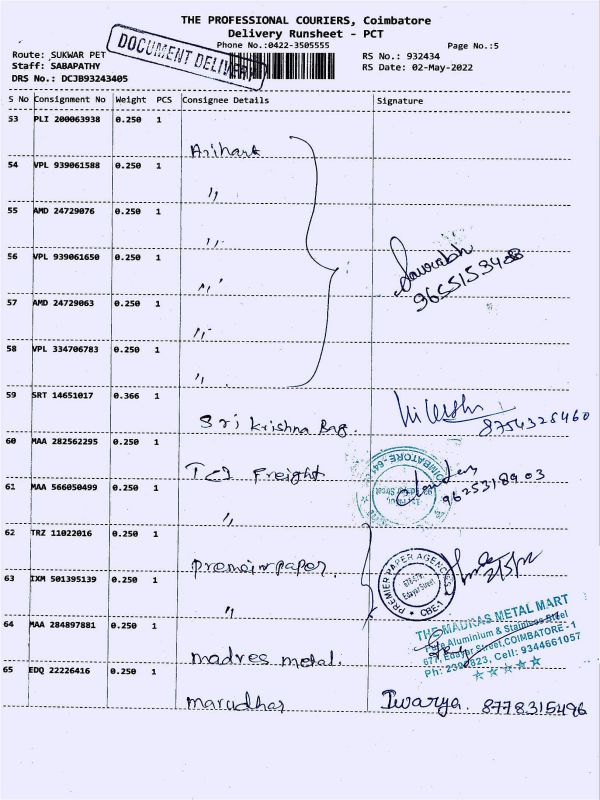 THE PROFESSIONAL COURIERS, Coimbatore
Delivery Runsheet - PCT
Phone No.:0422-3505555
Page No.:5
DOCUMENT DELIVERY
Route: SUKWAR PET
Staff: SABAPATHY
DRS No.: DCJB93243405
RS No.: 932434
RS Date: 02-May-2022
S No Consignment No Weight PCS Consignee Details Signature
53 PLI 200063938 0.250 1
Arihant
54 VPL 939061588 0.250 1
"
55 AMD 24729076 0.250 1
"
56 VPL 939061650 0.250 1
"
57 AMD 24729063 0.250 1
"
58 VPL 334706783 0.250 1
"
Saurabh
59 SRT 14651017 0.366 1
Sri Krishna Bag.
8754328460
60 MAA 282562295 0.250 1
Freight
COIMBATORE-641
61 MAA 566050499 0.250 1
"
9625318903
62 TRZ 11022016 0.250 1
PREMIER PAPER AGENCIES
Edayar Street
CBE-1
63 IXM 501395139 0.250 1
"
64 MAA 284897881 0.250 1
madres metal.
THE MADRAS METAL MART
Aluminium & Stainless Steel
677, Edayar Street, COIMBATORE - 1
Cell: 9344661057
65 EDQ 22226416 0.250 1
marudhar
8778315496